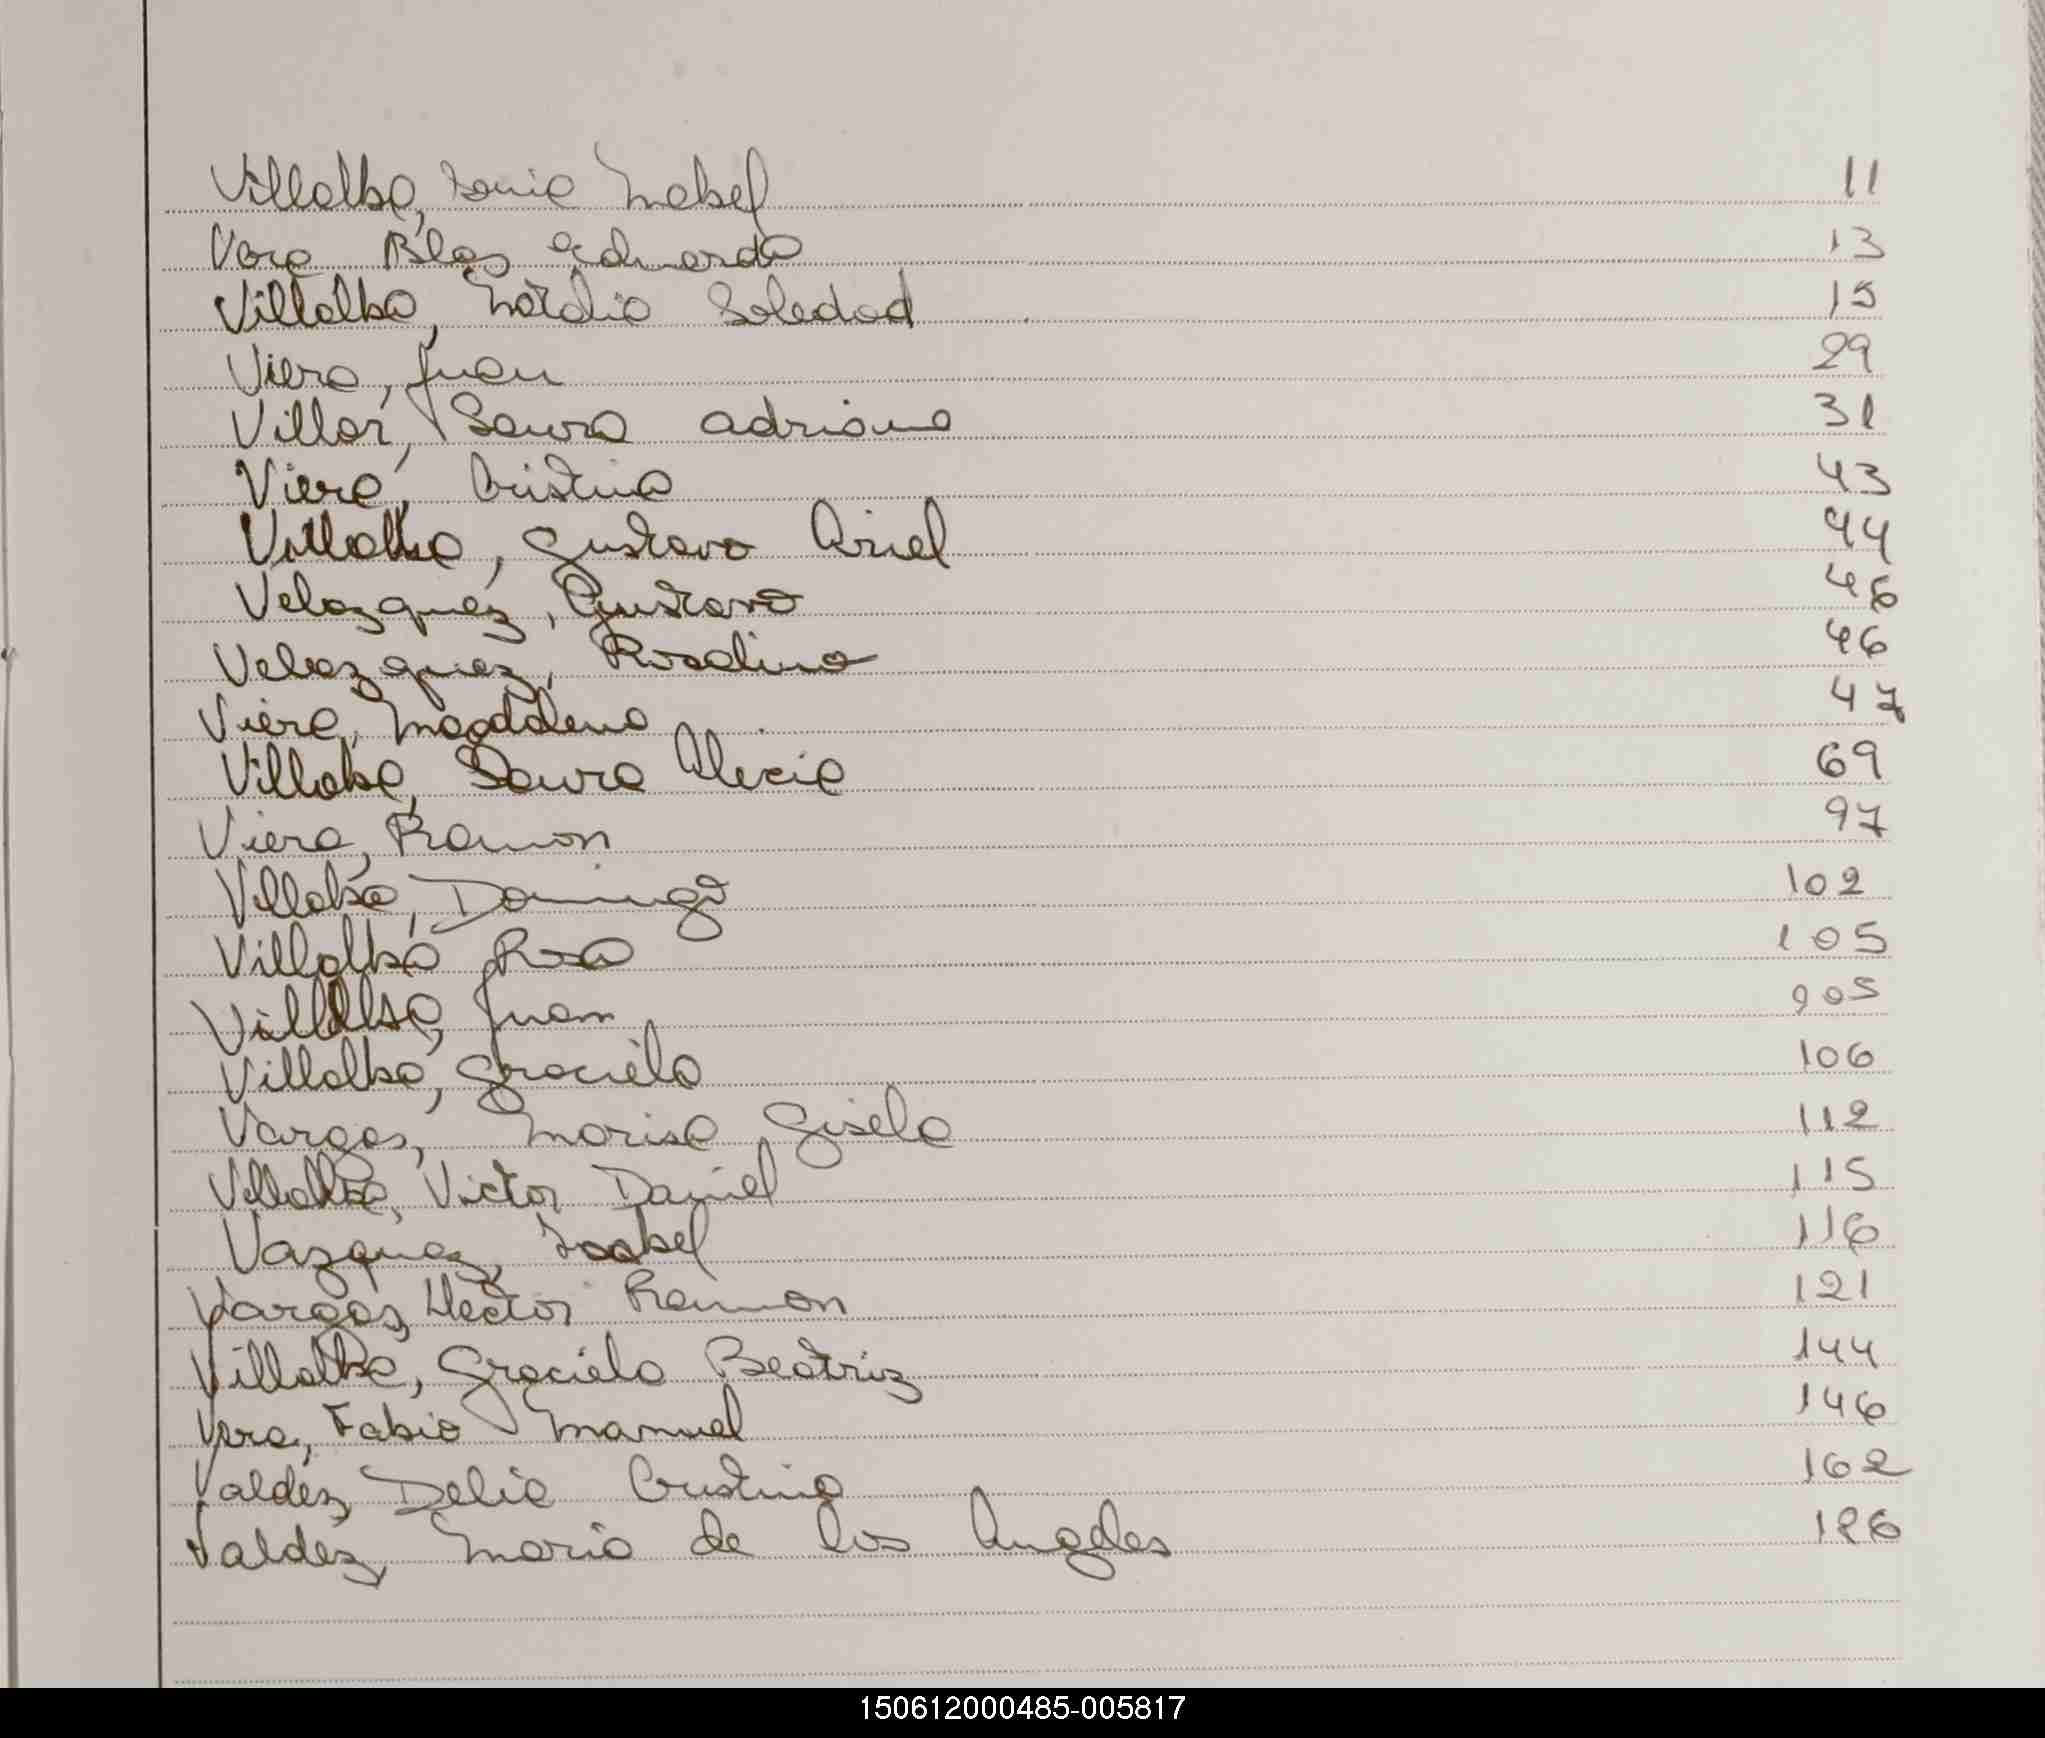 Villalba, Sonia Mabel 11
Vera Blas Eduardo 13
Villalba, Nardia Soledad 15
Viera, Juan 29
Villar, Laura Adriana 31
Viera, Cristina 43
Villalba, Gustavo Ariel 44
Velazquez, Gustavo 46
Velazquez, Rosalino 46
Viera, Magdalena 47
Villalba, Laura Alicia 69
Viera, Ramon 97
Villalba, Domingo 102
Villalba Rosa 105
Villalba, Juan 105
Villalba, Graciela 106
Vargas, Marisa Gisela 112
Villalba, Victor Daniel 115
Vazquez, Isabel 116
Vargas, Hector Ramon 121
Villalba, Graciela Beatriz 144
Vera, Fabio Manuel 146
Valdéz, Delia Cristina 162
Valdéz, Maria de los Angeles
150612000485-005817